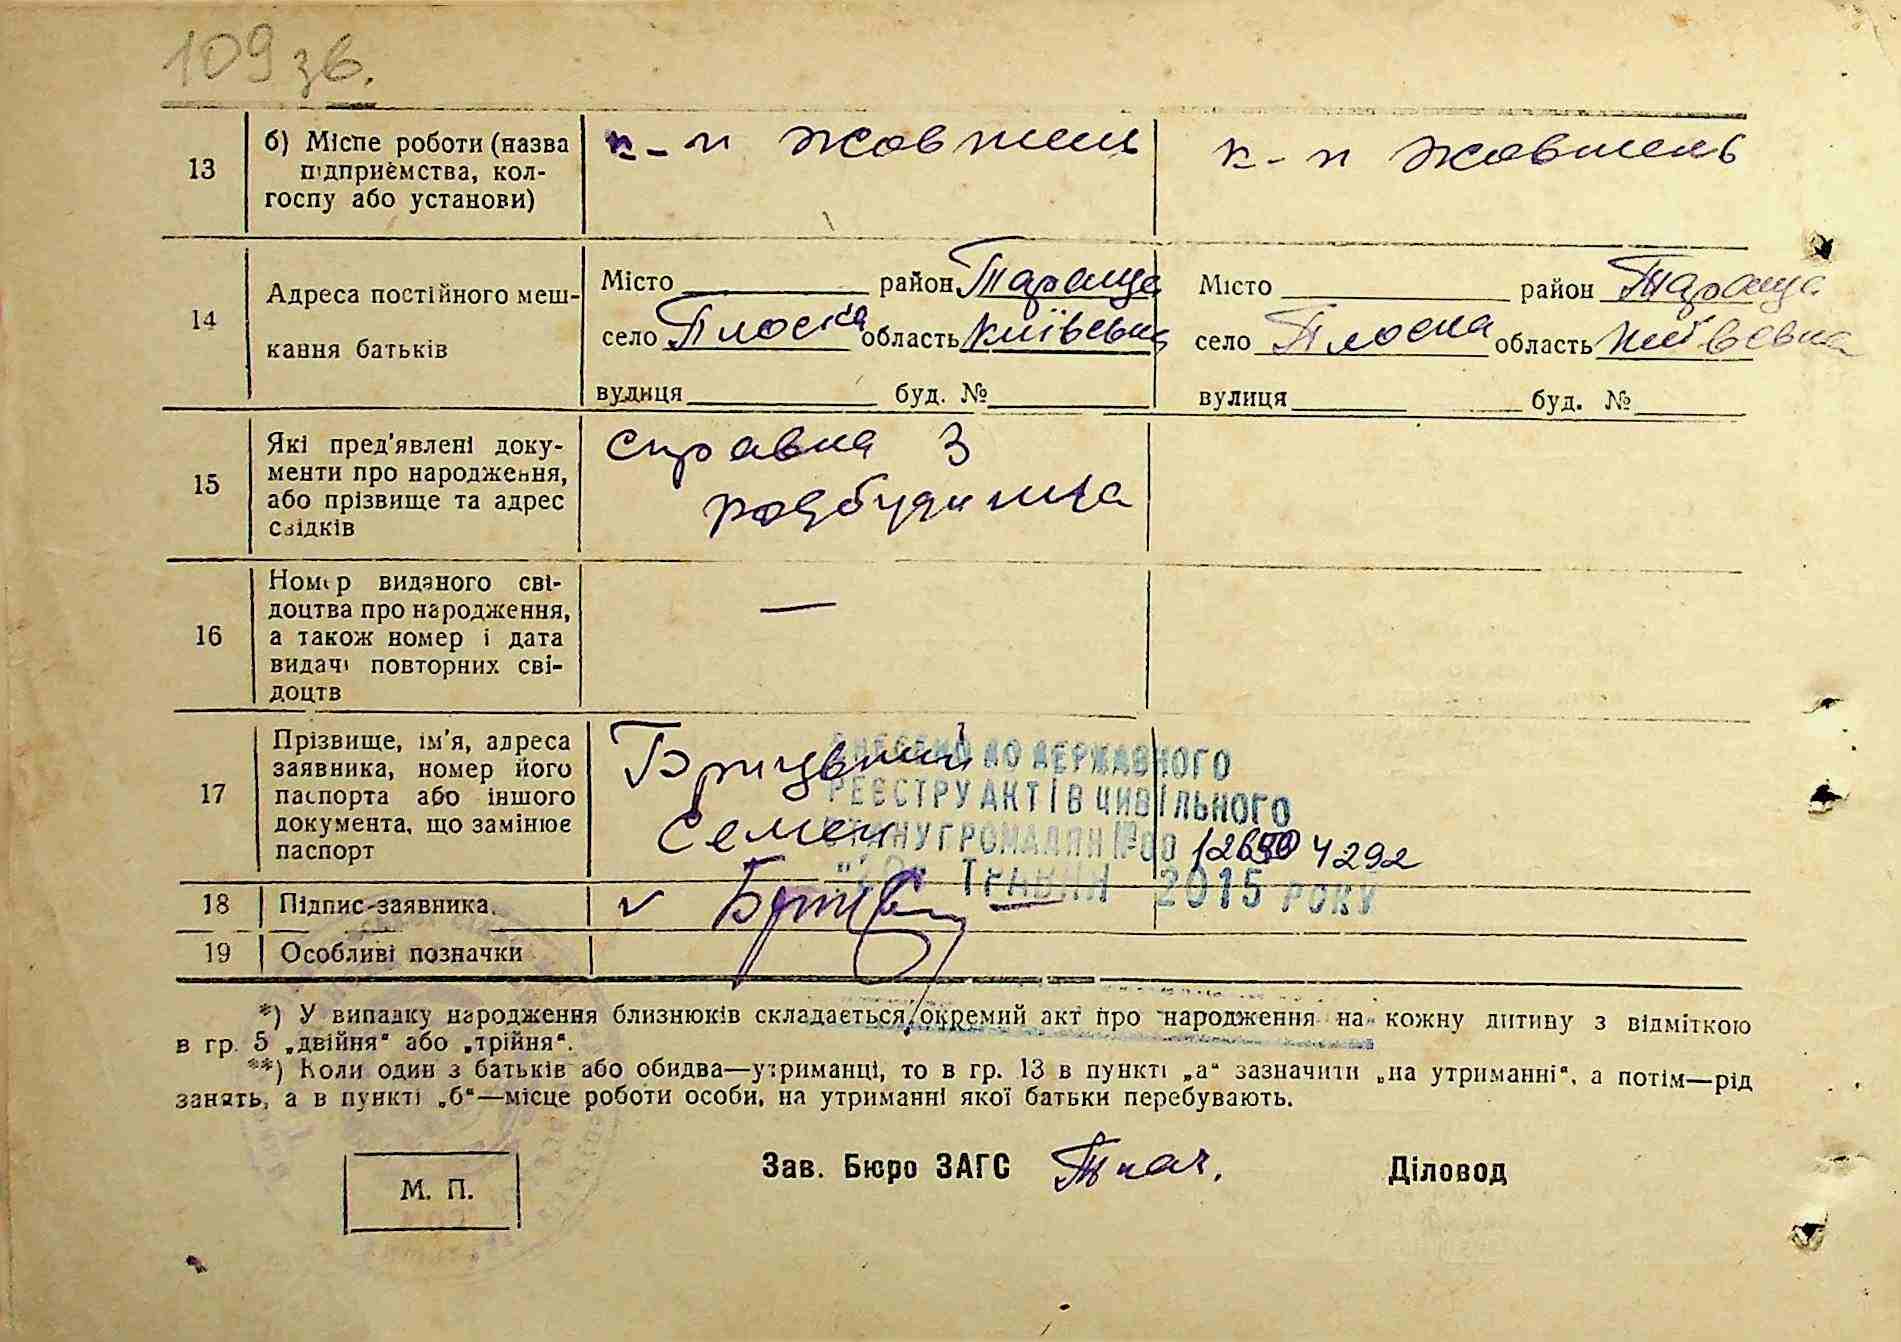 109 зв.
13
б) Місце роботи (назва
підприємства, кол-
госпу або установи)
к-п Жовтень
к-п Жовтень
14
Адреса постійного меш-
кання батьків
Місто район Тараща
село Плоска область Київська
вулиця буд. №
Місто район Тараща
село Плоска область Київська
вулиця буд. №
15
Які пред'явлені доку-
менти про народження,
або прізвище та адрес
свідків
справка з
родбудинка
16
Номер виданого сві-
доцтва про народження,
а також номер і дата
видачі повторних сві-
доцтв
—
17
Прізвище, ім'я, адреса
заявника, номер його
паспорта або іншого
документа, що замінює
паспорт
Семен
ВНЕСЕНО ДО ДЕРЖАВНОГО
РЕЄСТРУ АКТІВ ЦИВІЛЬНОГО
СТАНУ ГРОМАДЯН №00
ТРАВНЯ 2015 РОКУ
18
Підпис заявника
19
Особливі позначки
*) У випадку народження близнюків складається окремий акт про народження на кожну дитину з відміткою
в гр. 5 „двійня“ або „трійня“.
**) Коли один з батьків або обидва—утриманці, то в гр. 13 в пункті „а“ зазначити „на утриманні“, а потім—рід
занять, а в пункті „б“—місце роботи особи, на утриманні якої батьки перебувають.
М. П.
Зав. Бюро ЗАГС Ткач.
Діловод